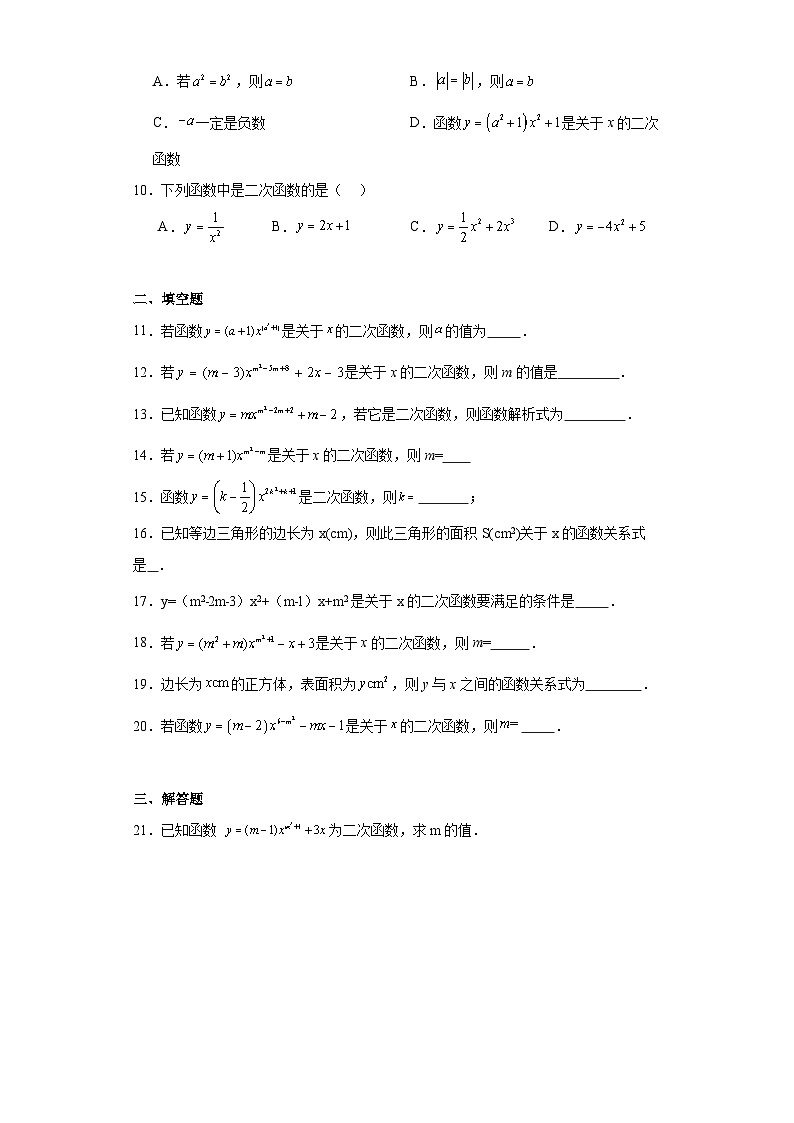 A.若a² = b²,则a = b B.|a| = |b|,则a = b
C.−a一定是负数 D.函数y = (a² + 1)x² + 1是关于 x 的二次
函数
10.下列函数中是二次函数的是( )
A.y = 1/x² B.y = 2x + 1 C.y = 1/2 x² + 2x³ D.y = −4x² + 5
二、填空题
11.若函数 是关于 x 的二次函数,则a的值为_____.
12.若y = (m − 3)x^(m²−5m+8) + 2x − 3是关于 x 的二次函数,则 m 的值是_________.
13.已知函数y = mx^(m²−2m+2) + m − 2,若它是二次函数,则函数解析式为_________.
14.若y = (m + 1)x^(m²−m)是关于 x 的二次函数,则 m=____
15.函数y = (k − 1/2)x^(2k²+k+1)是二次函数,则k = _______;
16.已知等边三角形的边长为 x(cm),则此三角形的面积 S(cm²)关于 x 的函数关系式
是_.
17.y=(m²-2m-3)x²+(m-1)x+m² 是关于 x 的二次函数要满足的条件是_____.
18.若y = (m² + m)x^(m²+1) − x + 3是关于 x 的二次函数,则 m=______.
19.边长为xcm的正方体,表面积为ycm²,则 y 与 x 之间的函数关系式为________.
20.若函数y = (m − 2)x^(6−m²) − mx − 1是关于 x 的二次函数,则m= _____.
三、解答题
21.已知函数 y = (m − 1)x^(m²+1) + 3x 为二次函数,求 m 的值.